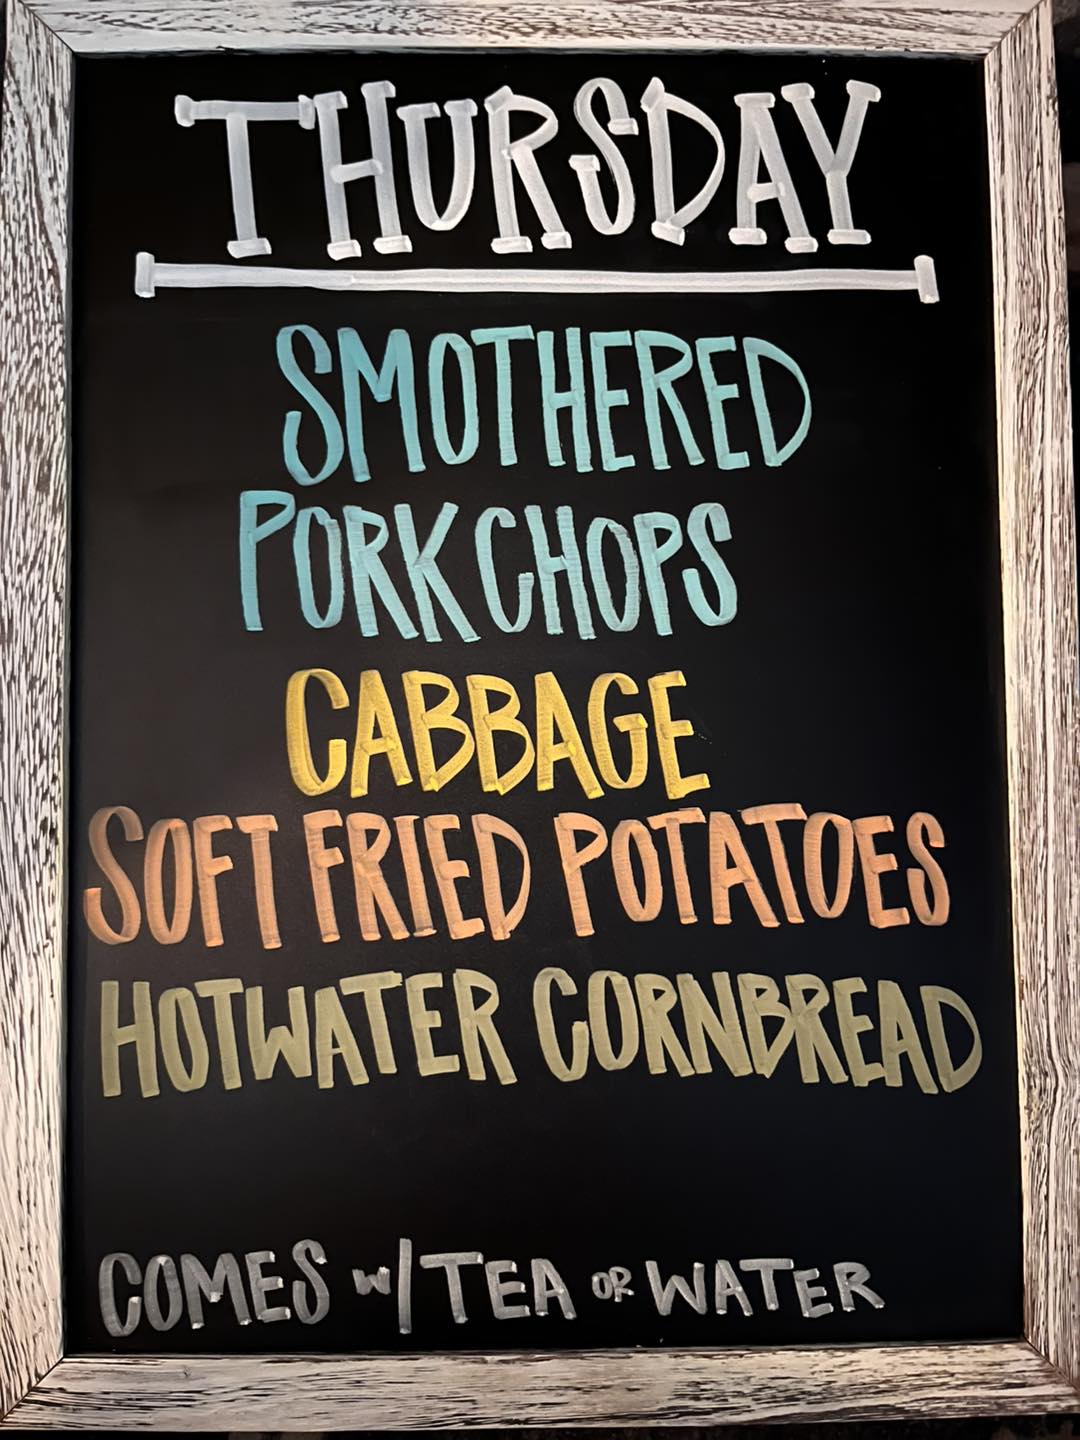 THURSDAY
SMOTHERED
PORK CHOPS
CABBAGE
SOFT FRIED POTATOES
HOTWATER CORNBREAD
COMES w/ TEA OR WATER